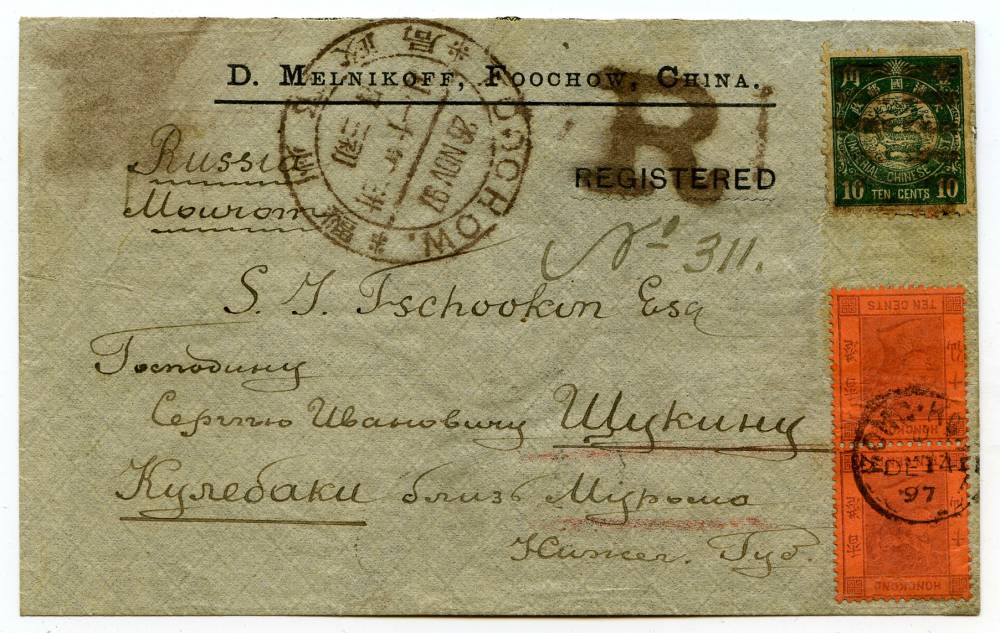 D. MELNIKOFF, FOOCHOW, CHINA.
Russia
Mourom
R
REGISTERED
№ 311.
S. J. Tschookin Esq
Господину
Сергѣю Ивановичу Щукину
Кулебаки близь Мурома
Нижег. Губ.
FOOCHOW.
26 NOV 97
IMPERIAL CHINESE POST
10 TEN CENTS 10
TEN CENTS
HONGKONG
HONGKONG
DE 14
97